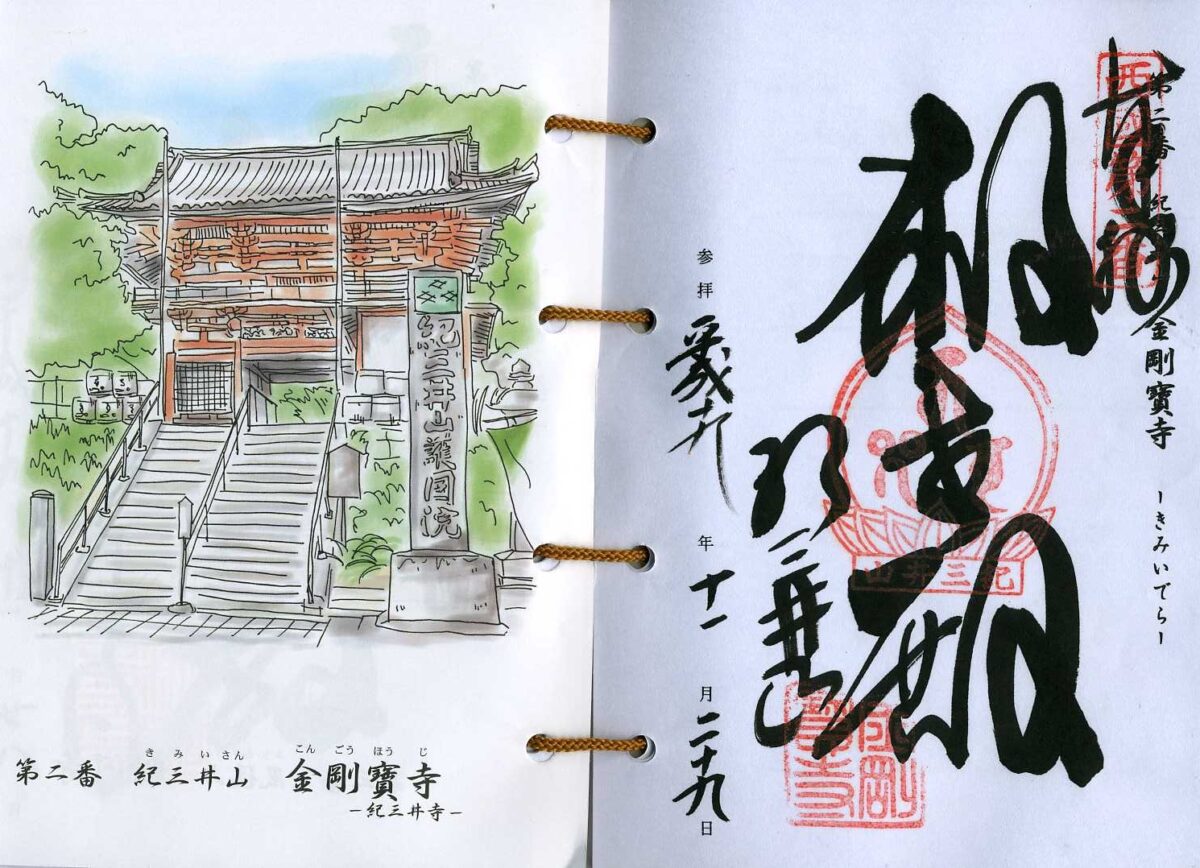 紀三井山護国院
きみいさん こんごうほうじ
第二番 紀三井山 金剛寶寺
−紀三井寺−
奉拝
西国第二番
第二番 紀
金剛寶寺 −きみいでら−
山井三紀
三井寺
金剛寶寺
参拝
年十一月二十九日